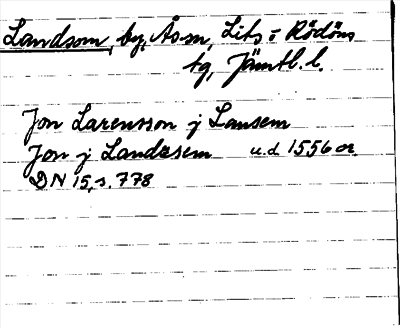 Landsom, by, Ås sn, Lits o Rödöns
tg, Jämtl. l.
Jon Larensson j Lansem
Jon j Landasem u.d. 1556 or.
DN 15, s. 778